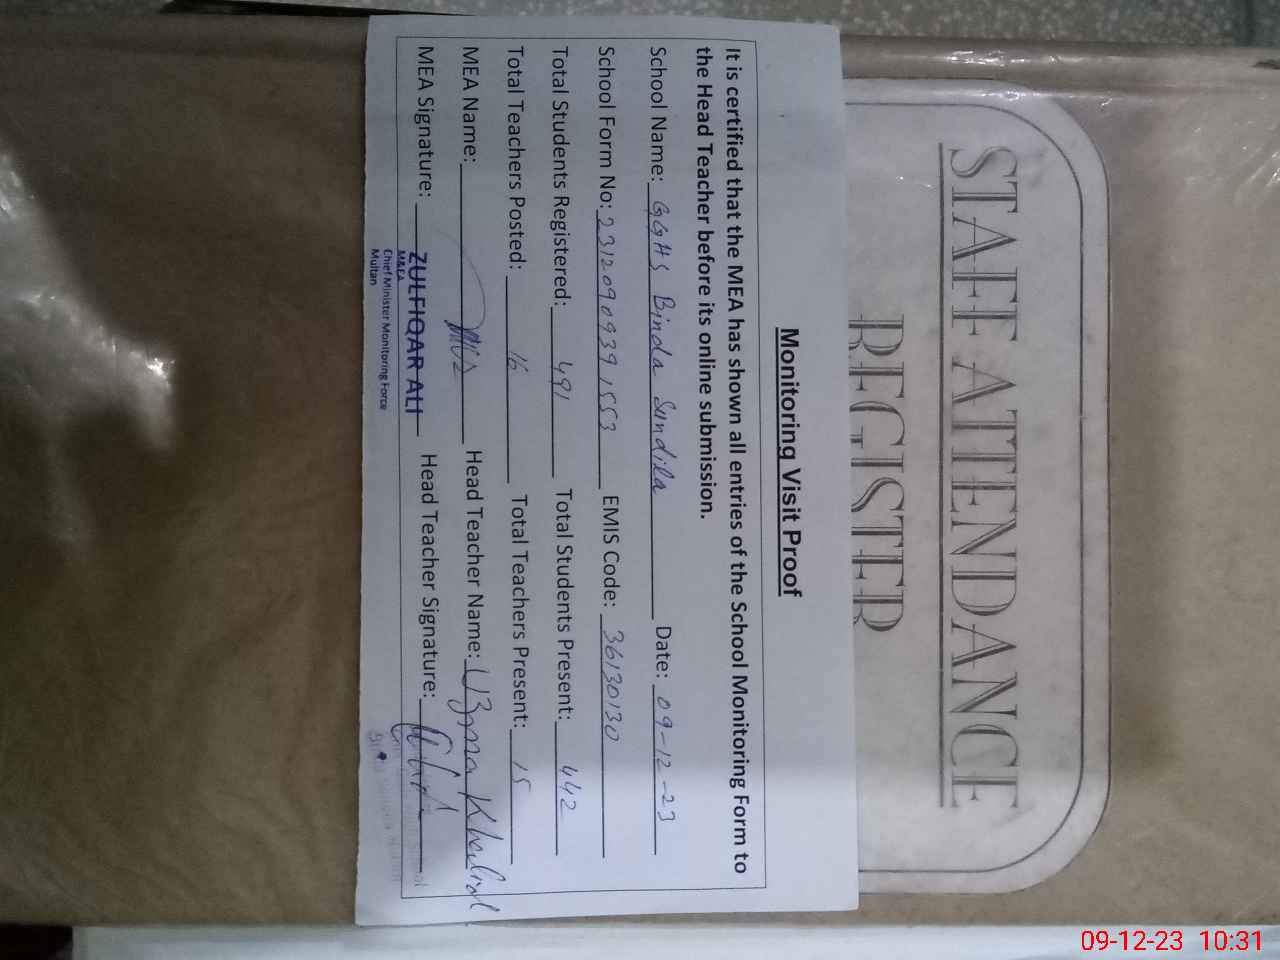 STAFF ATTENDANCE
REGISTER
Monitoring Visit Proof
It is certified that the MEA has shown all entries of the School Monitoring Form to
the Head Teacher before its online submission.
School Name: GGHS Binda Sundila Date: 09-12-23
School Form No: 23120909391553 EMIS Code: 36130130
Total Students Registered: 491 Total Students Present: 442
Total Teachers Posted: 16 Total Teachers Present: 15
MEA Name: Head Teacher Name: Uzma Khalid
MEA Signature: ZULFIQAR ALI Head Teacher Signature:
M&EA
Chief Minister Monitoring Force
Multan
09-12-23 10:31